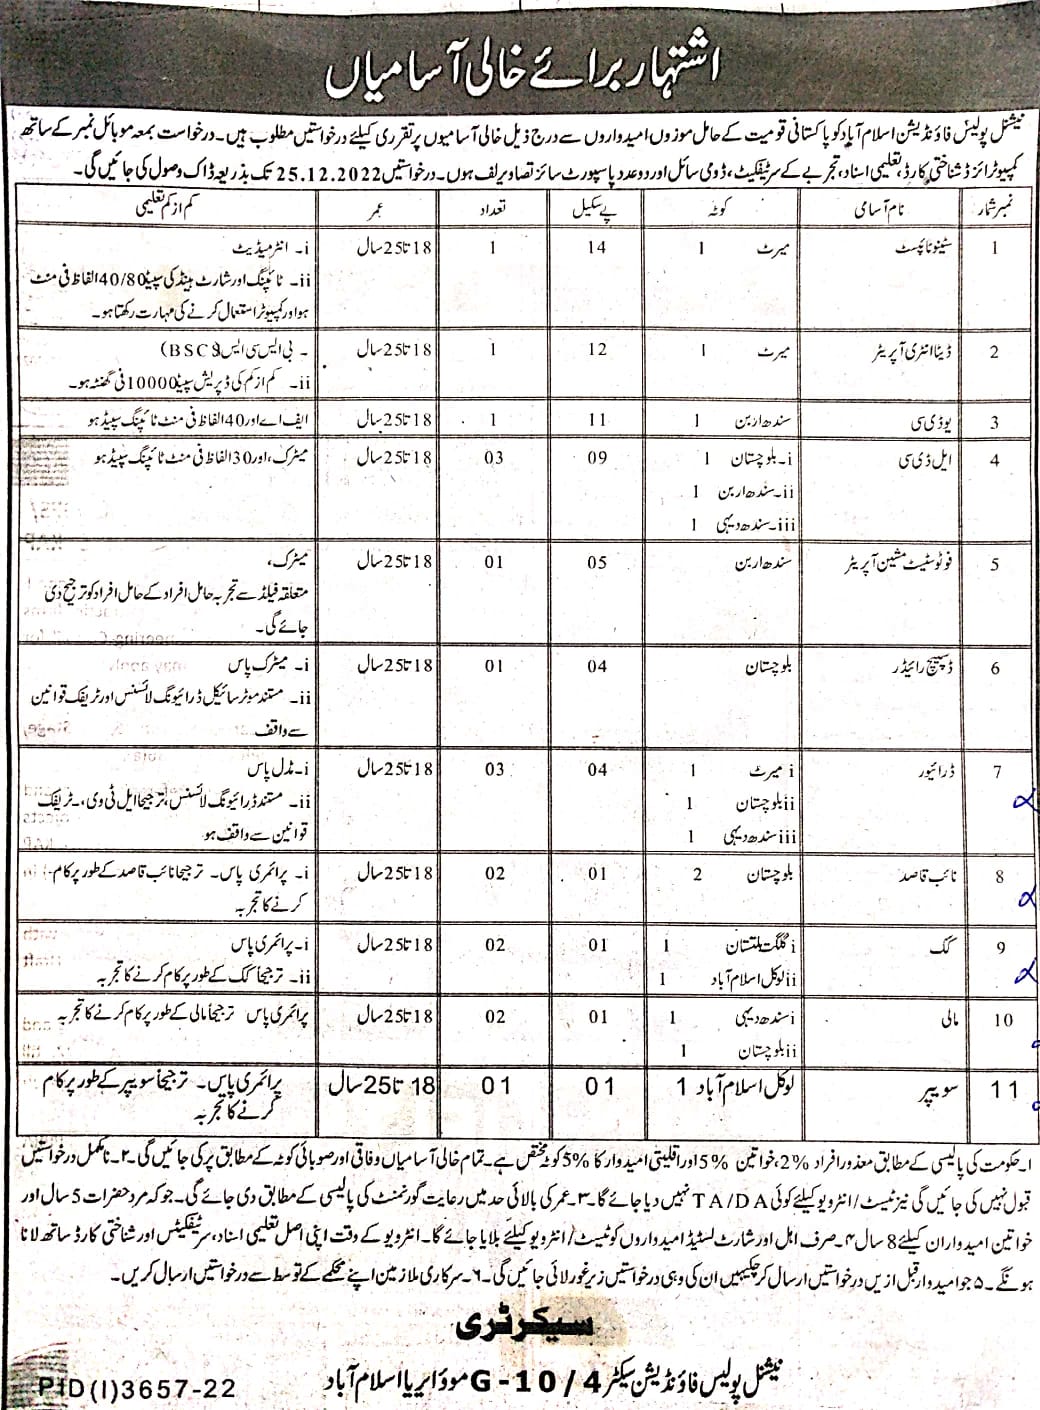 اشتہار برائے خالی آسامیاں
نیشنل پولیس فاؤنڈیشن اسلام آباد کو پاکستانی قومیت کے حامل موزوں امیدواروں سے درج ذیل خالی آسامیوں پر تقرری کیلئے درخواستیں مطلوب ہیں۔ درخواست بمعہ موبائل نمبر کے ساتھ
کمپیوٹرائزڈ شناختی کارڈ، تعلیمی اسناد، تجربے کے سرٹیفکیٹ، ڈومی سائل اور دو عدد پاسپورٹ سائز تصاویر لف ہوں۔ درخواستیں 25.12.2022 تک بذریعہ ڈاک وصول کی جائیں گی۔
نمبر شمار نام آسامی کوٹہ پے سکیل تعداد عمر کم از کم تعلیمی
1 سٹینو ٹائپسٹ میرٹ 1 14 1 18 تا 25 سال i۔ انٹرمیڈیٹ
ii۔ ٹائپنگ اور شارٹ ہینڈ کی سپیڈ 40/80 الفاظ فی منٹ
ہو اور کمپیوٹر استعمال کرنے کی مہارت رکھتا ہو۔
2 ڈیٹا انٹری آپریٹر میرٹ 1 12 1 18 تا 25 سال ۔ بی ایس سی ایس (BSCS)
ii۔ کم از کم کی ڈپریشن سپیڈ 10000 فی گھنٹہ ہو۔
3 یو ڈی سی سندھ اربن 1 11 1 18 تا 25 سال ایف اے اور 40 الفاظ فی منٹ ٹائپنگ سپیڈ ہو
4 ایل ڈی سی i۔ بلوچستان 1 09 03 18 تا 25 سال میٹرک، اور 30 الفاظ فی منٹ ٹائپنگ سپیڈ ہو
ii۔ سندھ اربن 1
iii۔ سندھ دیہی 1
5 فوٹوسٹیٹ مشین آپریٹر سندھ اربن 05 01 18 تا 25 سال میٹرک،
متعلقہ فیلڈ سے تجربہ حامل افراد کے حامل افراد کو ترجیح دی
جائے گی۔
6 ڈسپیچ رائیڈر بلوچستان 04 01 18 تا 25 سال i۔ میٹرک پاس
ii۔ مستند موٹر سائیکل ڈرائیونگ لائسنس اور ٹریفک قوانین
سے واقف
7 ڈرائیور i میرٹ 1 04 03 18 تا 25 سال i۔ مڈل پاس
ii بلوچستان 1 ii۔ مستند ڈرائیونگ لائسنس، ترجیحا ایل ٹی وی،۔ ٹریفک
iii سندھ دیہی 1 قوانین سے واقف ہو
8 نائب قاصد بلوچستان 2 01 02 18 تا 25 سال i۔ پرائمری پاس۔ ترجیحا نائب قاصد کے طور پر کام
کرنے کا تجربہ
9 کک i گلگت بلتستان 1 01 02 18 تا 25 سال i۔ پرائمری پاس
ii لوکل اسلام آباد 1 ii۔ ترجیحا کک کے طور پر کام کرنے کا تجربہ
10 مالی i سندھ دیہی 1 01 02 18 تا 25 سال پرائمری پاس ترجیحا مالی کے طور پر کام کرنے کا تجربہ
ii بلوچستان 1
11 سویپر لوکل اسلام آباد 1 01 01 18 تا 25 سال پرائمری پاس۔ ترجیحا سویپر کے طور پر کام
کرنے کا تجربہ
۱۔ حکومت کی پالیسی کے مطابق معذور افراد 2%، خواتین 5% اور اقلیتی امیدوار کا 5% کوٹہ مختص ہے۔ تمام خالی آسامیاں وفاقی اور صوبائی کوٹہ کے مطابق پر کی جائیں گی۔ ۲۔ نامکمل درخواستیں
قبول نہیں کی جائیں گی نیز ٹیسٹ/ انٹرویو کیلئے کوئی TA/DA نہیں دیا جائے گا۔ ۳۔ عمر کی بالائی حد میں رعایت گورنمنٹ کی پالیسی کے مطابق دی جائے گی۔ جو کہ مرد حضرات 5 سال اور
خواتین امیدواران کیلئے 8 سال ۴۔ صرف اہل اور شارٹ لسٹیڈ امیدواروں کو ٹیسٹ/ انٹرویو کیلئے بلایا جائے گا۔ انٹرویو کے وقت اپنی اصل تعلیمی اسناد، سرٹیفکیٹس اور شناختی کارڈ ساتھ لانا
ہونگے۔ ۵ جو امیدوار قبل ازیں درخواستیں ارسال کر چکے ہیں ان کی وہی درخواستیں زیر غور لائی جائیں گی۔ ۶۔ سرکاری ملازمین اپنے محکمے کے توسط سے درخواستیں ارسال کریں۔
سیکرٹری
نیشنل پولیس فاؤنڈیشن سیکٹر G-10/4 موؤ ایریا اسلام آباد
PID(I)3657-22